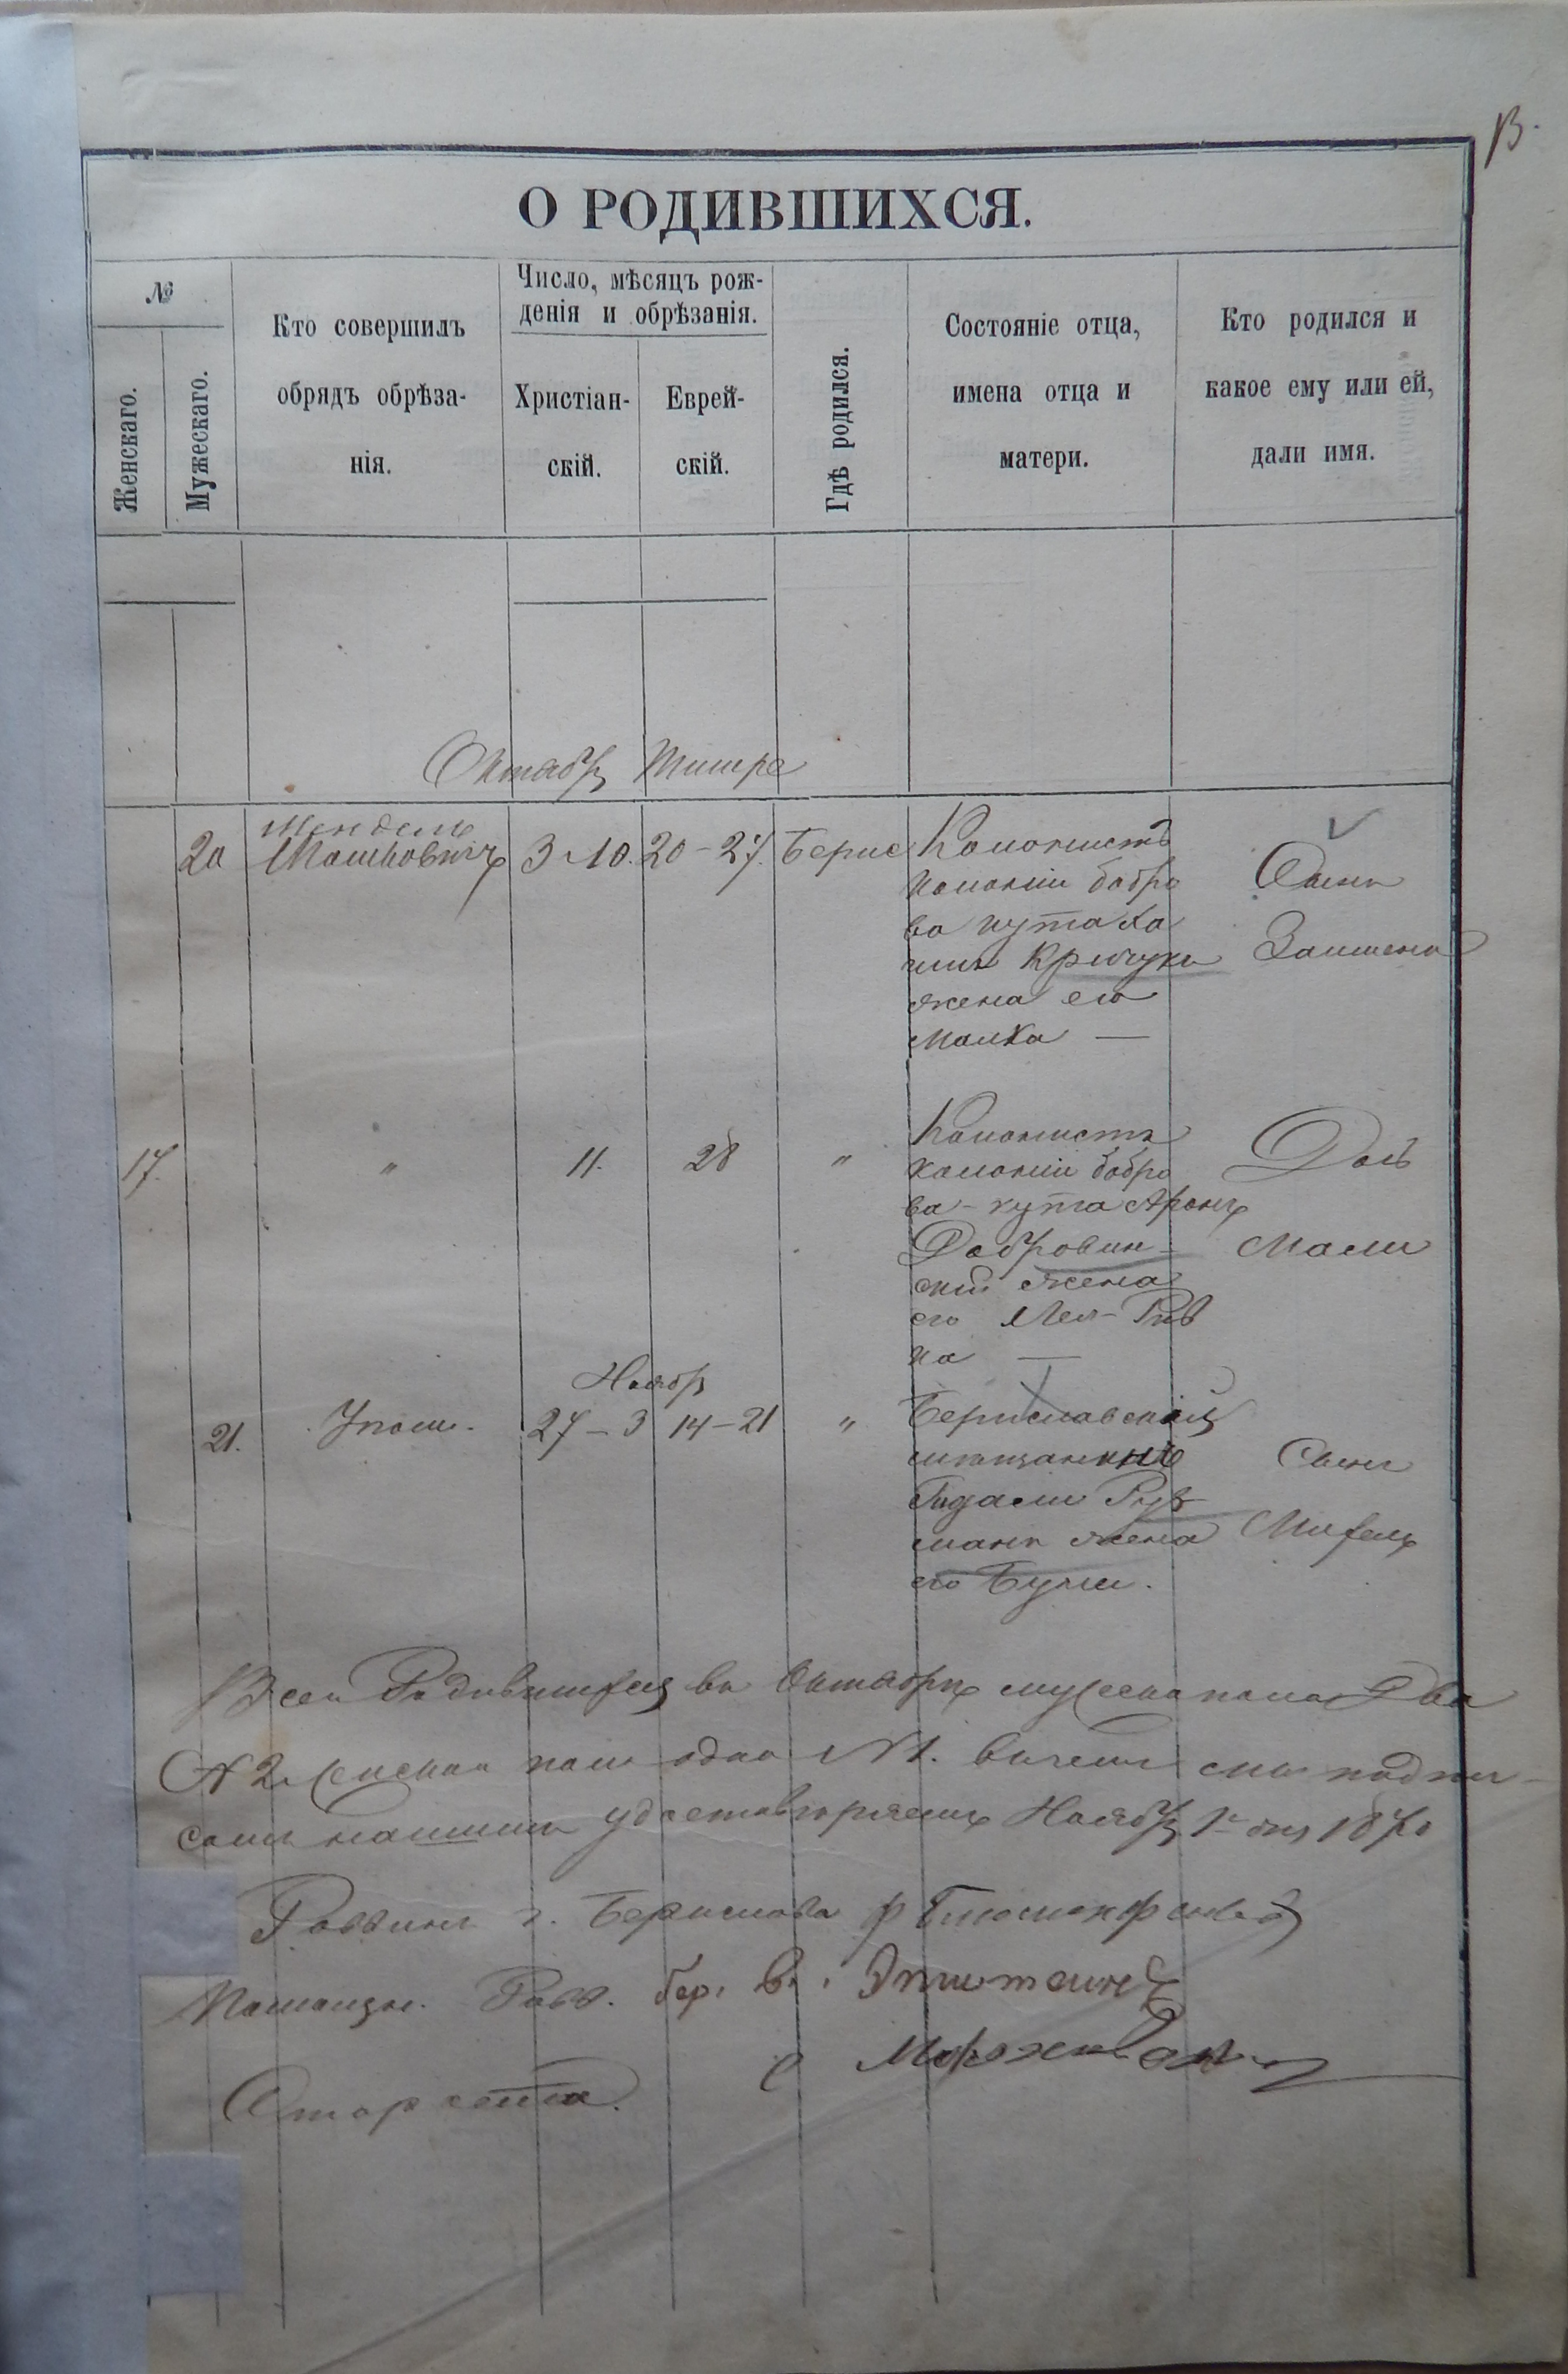 13.
О РОДИВШИХСЯ.
№
Женскаго.
Мужескаго.
Кто совершилъ
обрядъ обрѣза-
нія.
Число, мѣсяцъ рож-
денія и обрѣзанія.
Христіан-
скій.
Еврей-
скій.
Гдѣ родился.
Состояніе отца,
имена отца и
матери.
Кто родился и
какое ему или ей,
дали имя.
Октябр Тишре
20 Мендель
Машковичъ 3-10. 20-27. Берис
Колонистъ
колоніи бобро
ва кута Ха
имъ Кричукъ
жена его
Малка —
Сынъ
Залменъ
17. " 11. 28 "
Колонистъ
колоніи бобро
ва-кута Аронъ
Добровин-
скій жена
его Лея-Рив
ка —
Дочь
Мали
Ноябр
21. 27-3 14-21 "
Бериславскій
мещанинъ
жена
его
Сынъ
Михель
Всего Родившихся въ Октябрѣ мужеска пола Два
№ 2 женска пола одна № 1. въ чемъ мы подпи-
сомъ нашимъ удостоверяемъ Ноябр 1го дня 1870
Раввинъ г. Берислава
Помощн. Равв. бер. Эпштейнъ
Староста